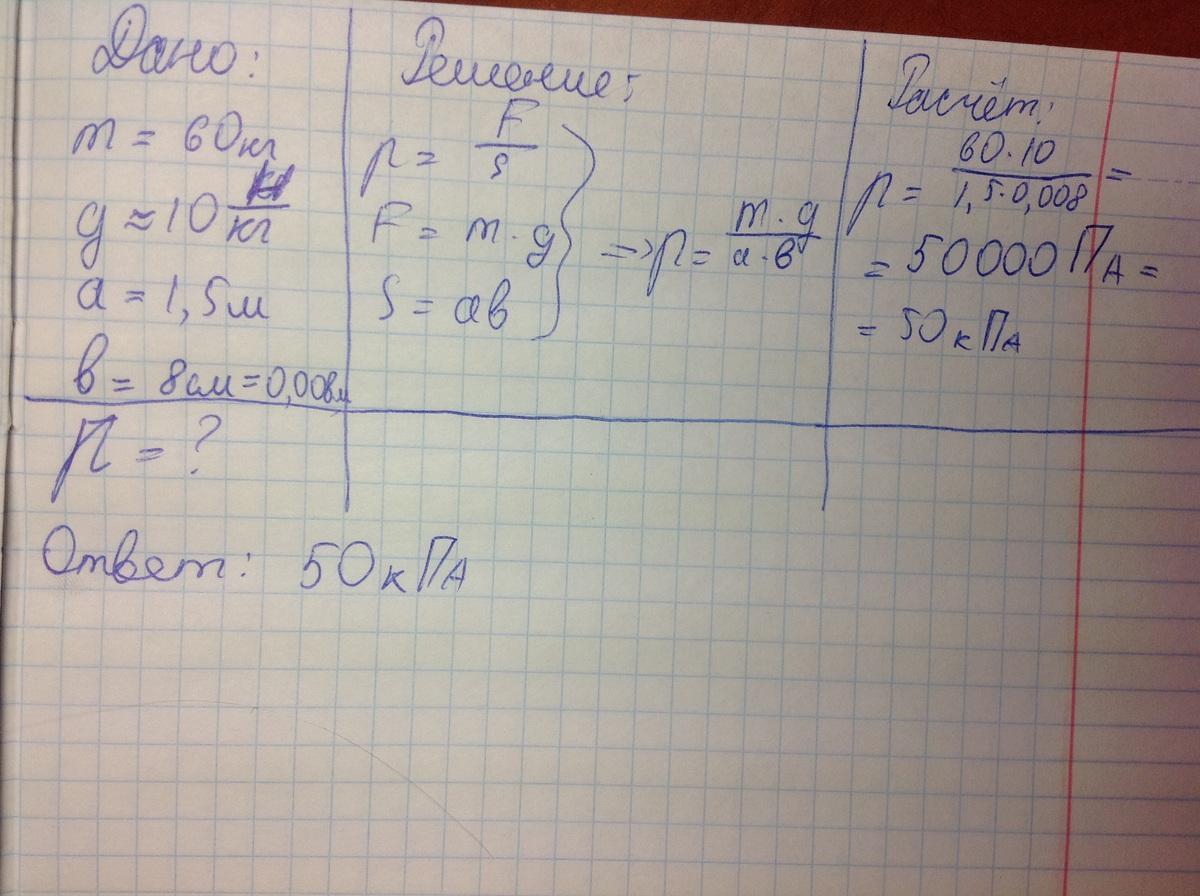 Дано:
m = 60кг
g ≈ 10 Н/кг
a = 1,5м
в = 8см = 0,008м
p = ?
Решение:
p = F/S
F = m · g
S = ав
=> p = m · g / а · в
Расчёт:
p = 60 · 10 / 1,5 · 0,008 =
= 50000 ПА =
= 50 кПА
Ответ: 50 кПА